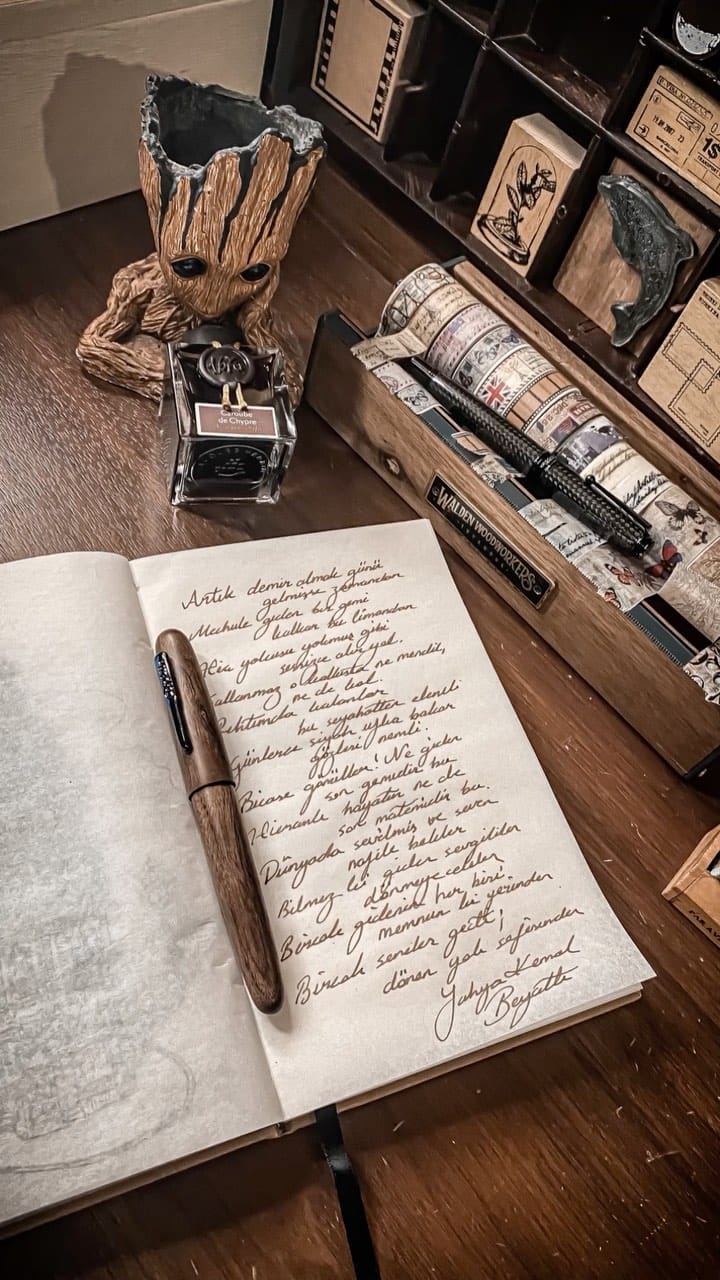 Artık demir almak günü
gelmişse zamandan
Meçhule giden bir gemi
kalkar bu limandan
Hiç yolcusu yokmuş gibi
sessizce alır yol.
Sallanmaz o kalkışta ne mendil,
ne de kol.
Rıhtımda kalanlar
bu seyahatten elemli
Günlerce siyah ufka bakar
gözleri nemli.
Biçare gönüller! Ne giden
son gemidir bu
Hicranlı hayatın ne de
son matemidir bu.
Dünyada sevilmiş ve seven
nafile bekler
Bilmez ki giden sevgililer
dönmeyecekler
Birçok gidenin her biri
memnun ki yerinden
Birçok seneler geçti;
dönen yok seferinden
Yahya Kemal
Beyatlı
Caroube
de Chypre
WALDEN WOODWORKERS